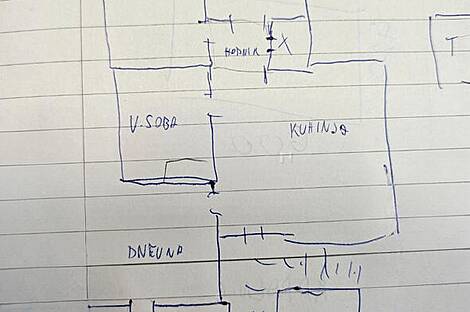 HODNIK
X
T
V.SOBA
KUHINJA
DNEVNA